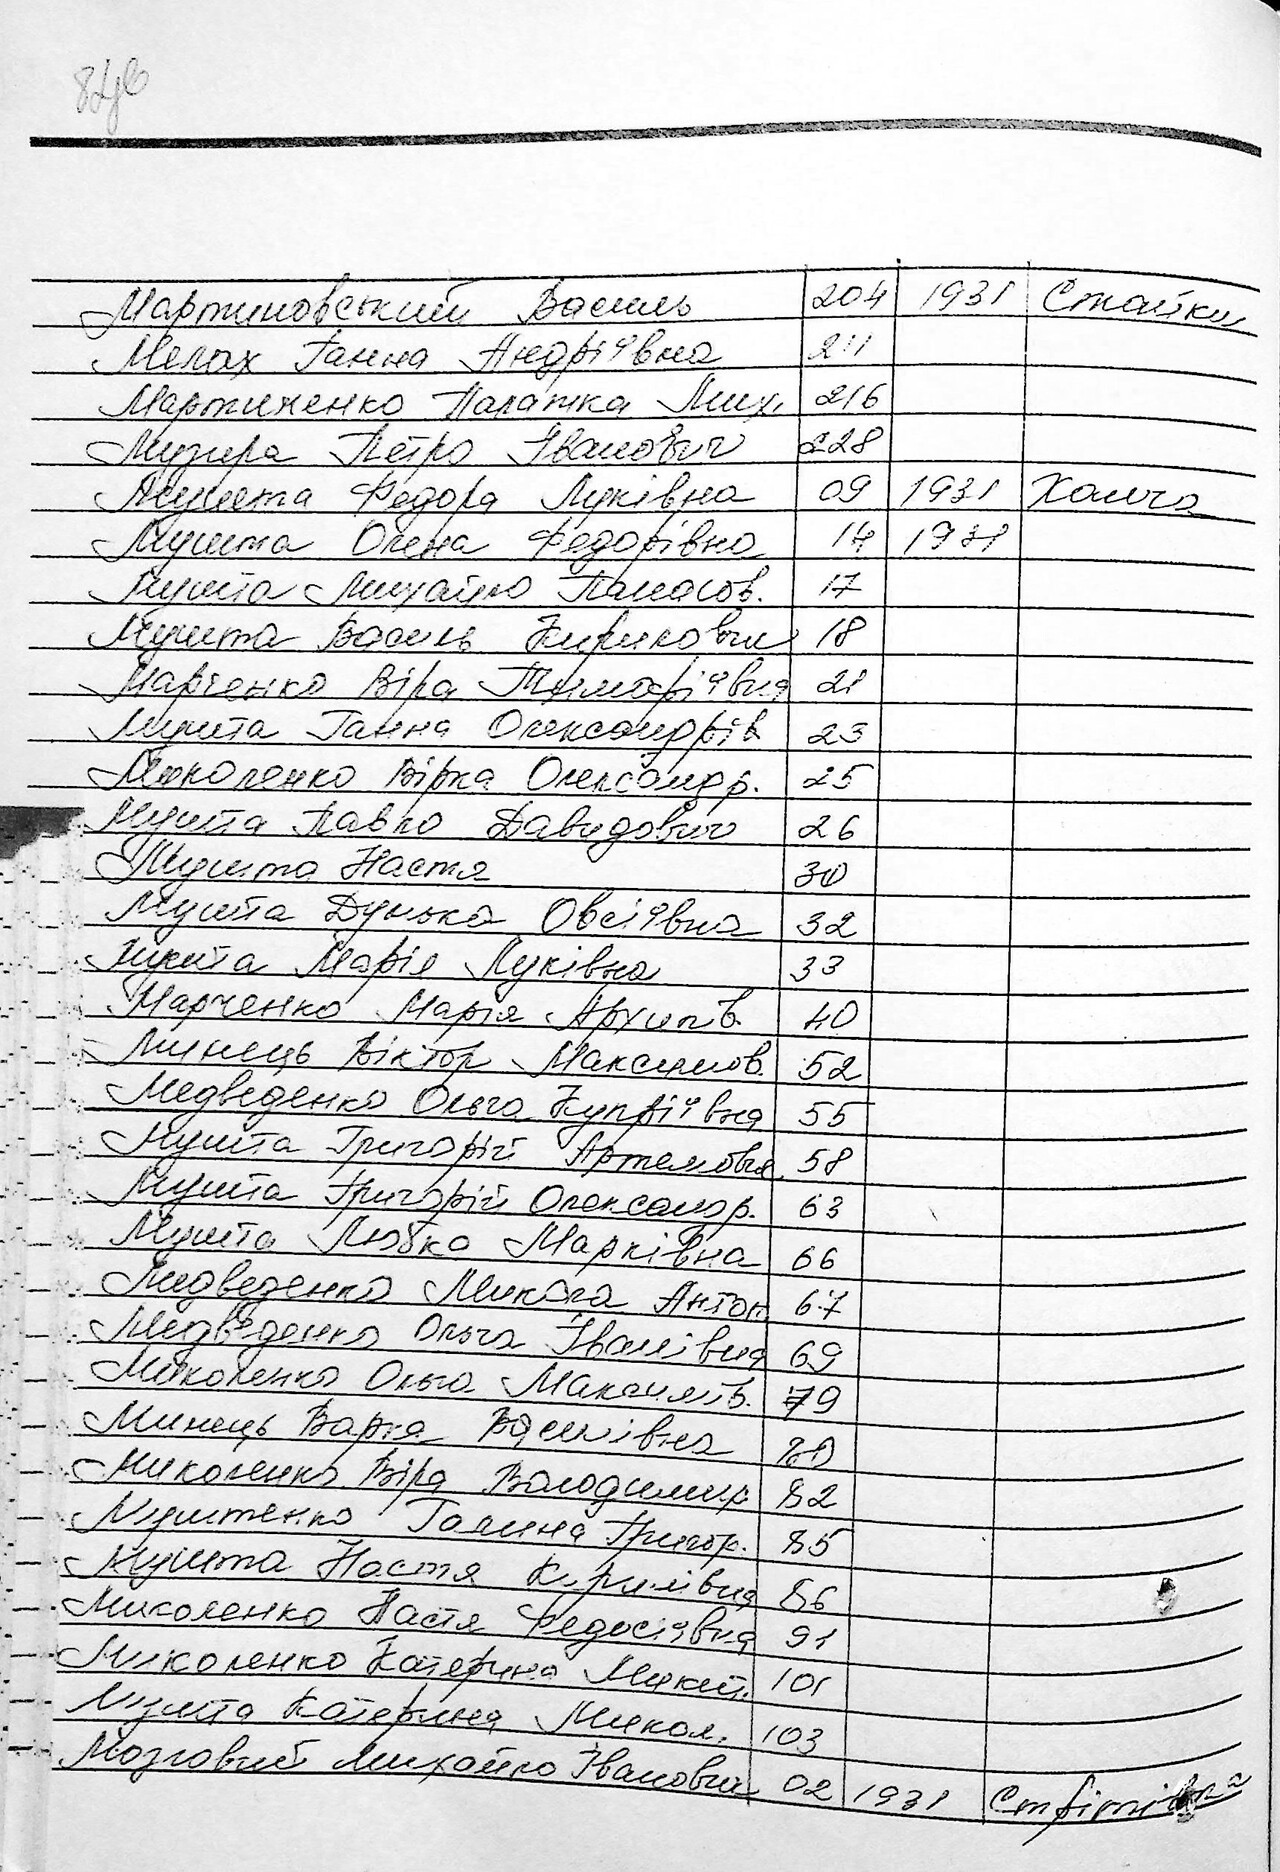 Мартиновський Василь 204 1931 Стайки
Мелах Ганна Андріївна 211
Мартиненко Палажка Мих. 216
Музира Петро Іванович 228
Мушта Федора Луківна 09 1931 Халча
Мушта Олена Федорівна 14 1931
Мушта Михайло Панасов. 17
Мушта Василь Кирилович 18
Марченко Віра Тимофіївна 21
Мушта Ганна Олександрів 23
Миколенко Вірка Олександр. 25
Мушта Павло Давидович 26
Мушта Настя 30
Мушта Дунька Овсіївна 32
Мушта Марія Луківна 33
Марченко Марія Архипів. 40
Минець Віктор Максимов. 52
Медведенко Ольга Купріївна 55
Мушта Григорій Артемович 58
Мушта Григорій Олександр. 63
Мушта Любка Марківна 66
Медведенко Микола Антон 67
Медведенко Ольга Іванівна 69
Миколенко Ольга Максимів. 79
Минець Варка Василівна 80
Миколенко Віра Володимир 82
Муштенко Галина Григор. 85
Мушта Настя Кирилівна 86
Миколенко Настя Федосіївна 91
Миколенко Катерина Микит. 101
Мушта Катерина Микол. 103
Мозговий Михайло Іванович 02 1931